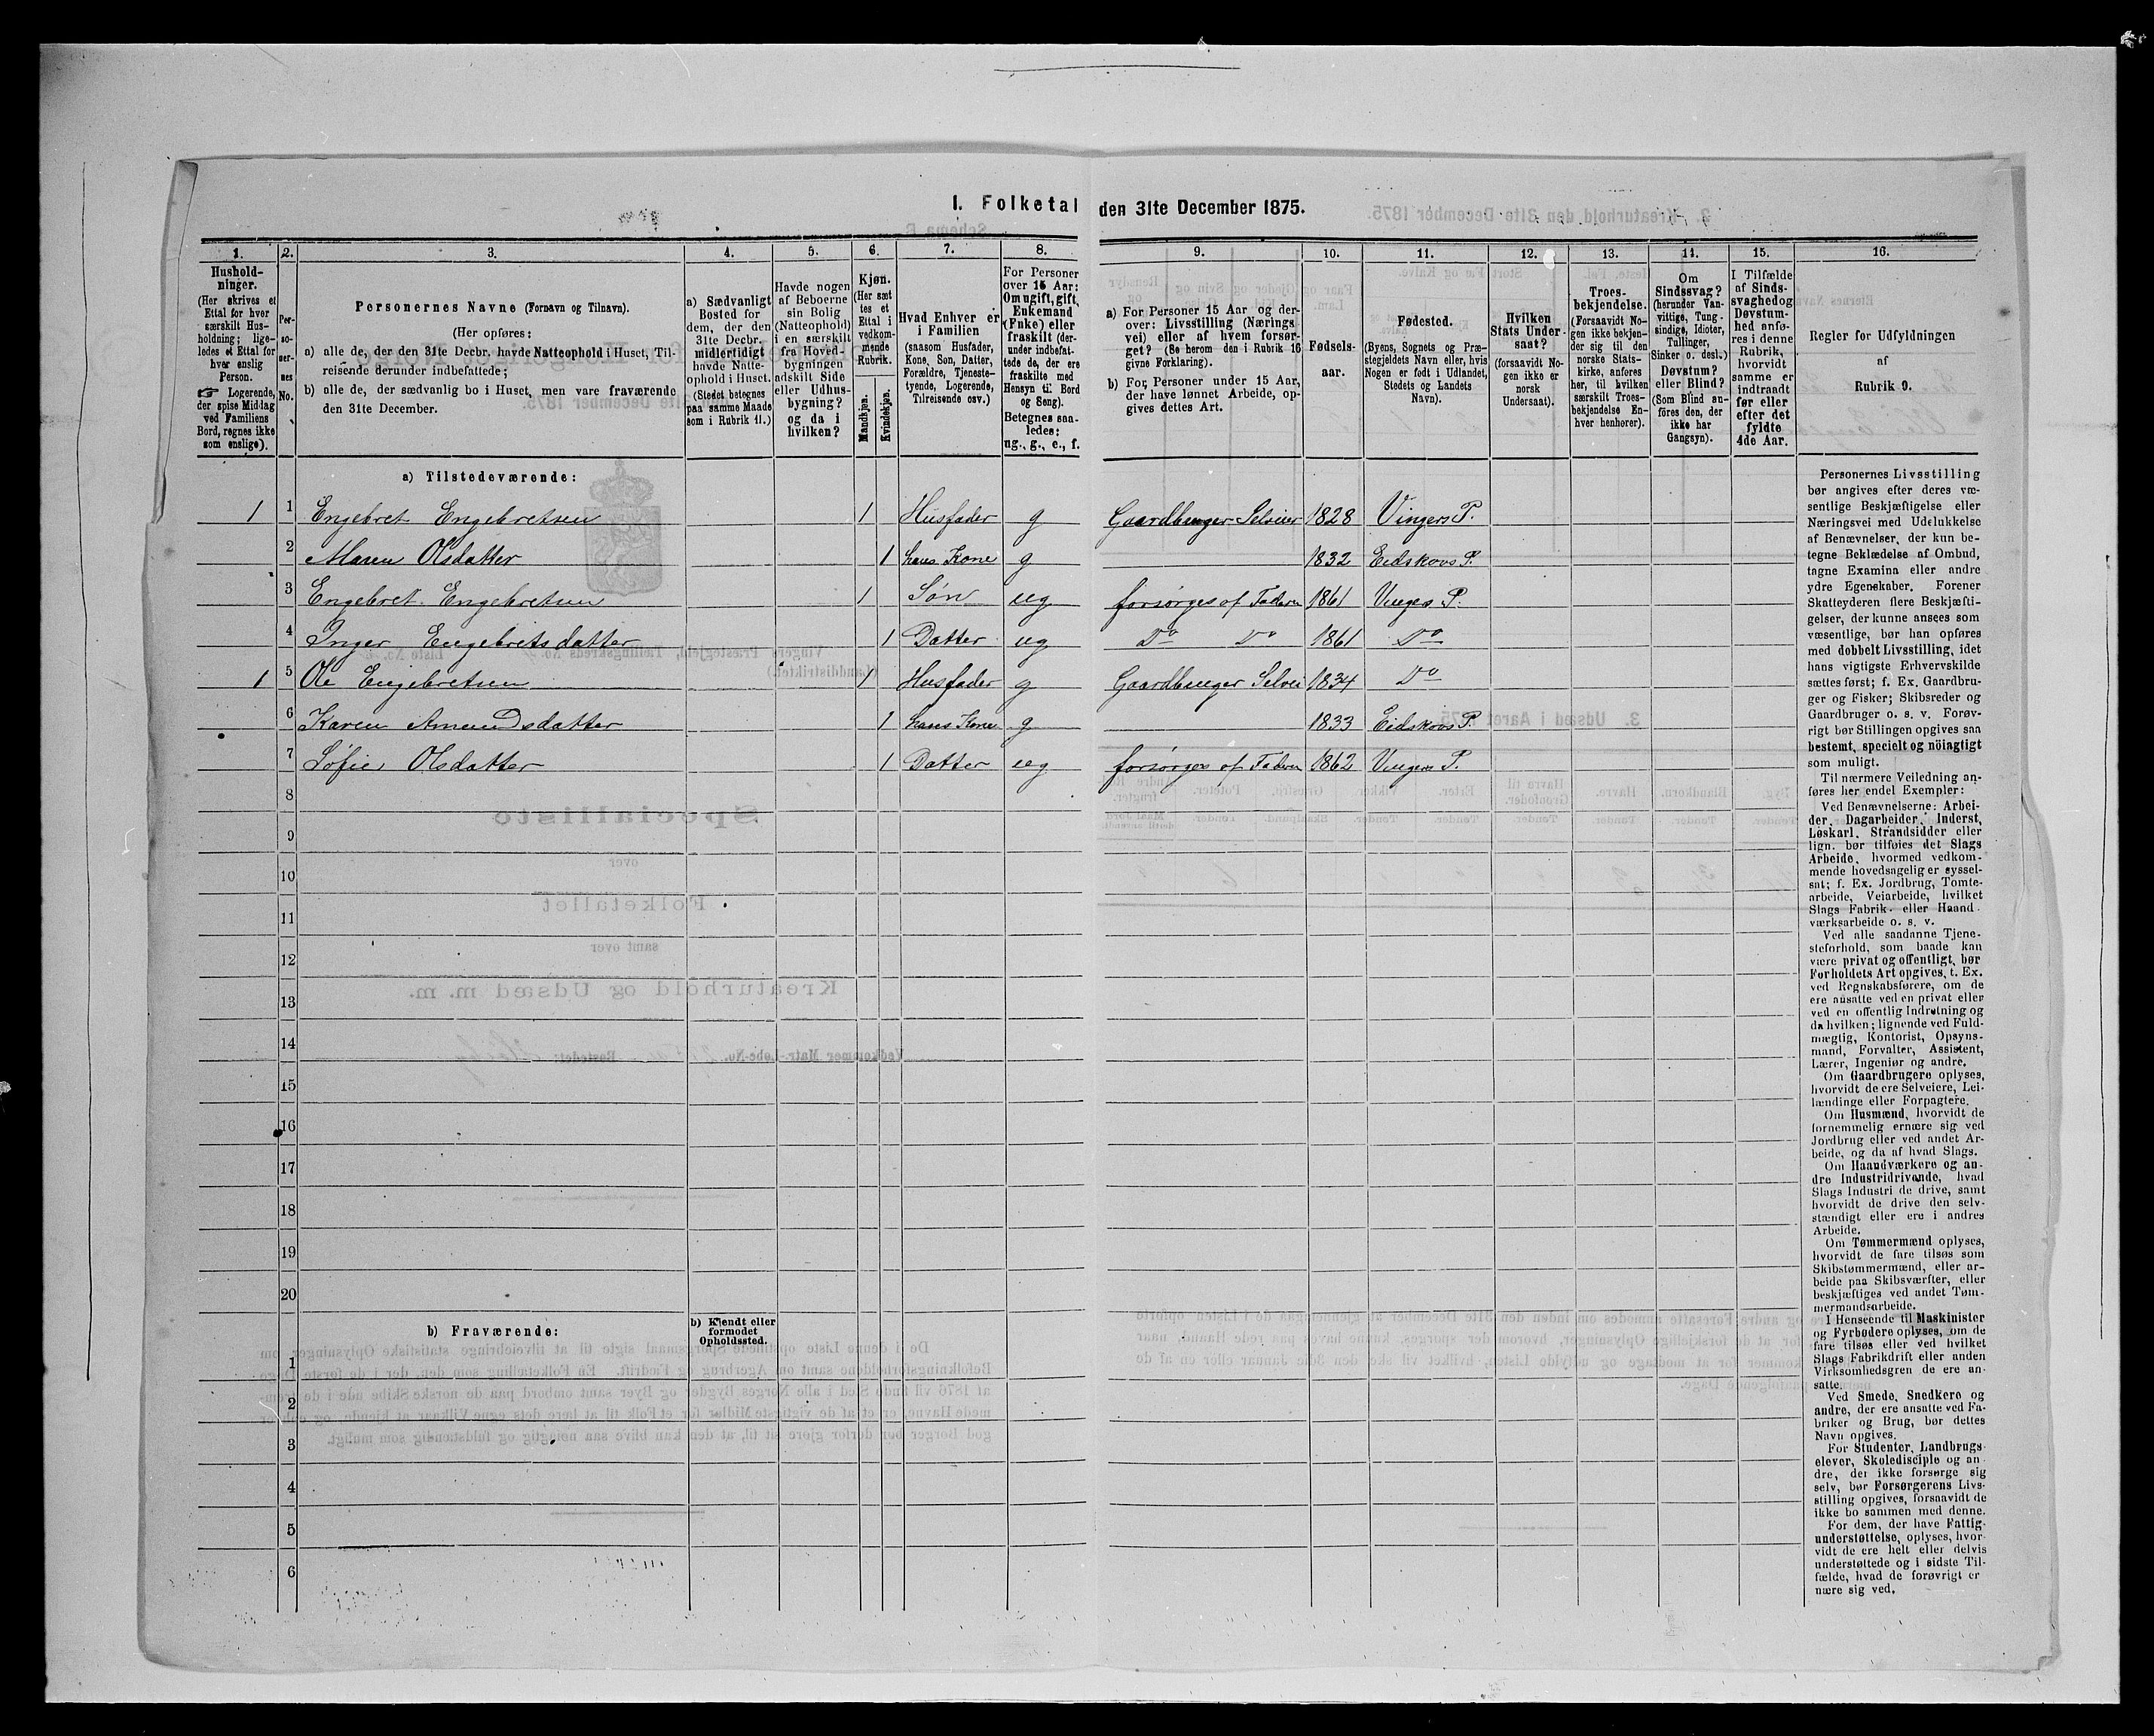 I. Folketal den 31te December 1875.
1. 2. 3. 4. 5. 6. 7. 8. 9. 10. 11. 12. 13. 14. 15. 16.
Hushold-
ninger.
(Her skrives et
Ettal for hver
særskilt Hus-
holdning; lige-
ledes et Ettal for
hver enslig
Person.
☞ Logerende,
der spise Middag
ved Familiens
Bord, regnes ikke
som enslige).
Per-
so-
ner-
nes
No.
Personernes Navne (Fornavn og Tilnavn).
(Her opføres:
a) alle de, der den 31te Decbr. havde Natteophold i Huset, Til-
reisende derunder indbefattede;
b) alle de, der sædvanlig bo i Huset, men vare fraværende
den 31te December.
a) Sædvanligt
Bosted for
dem, der den
31te Decbr.
midlertidigt
havde Natte-
ophold i Huset.
(Stedet betegnes
paa samme Maade
som i Rubrik 11.)
Havde nogen
af Beboerne
sin Bolig
(Natteophold)
i en særskilt
fra Hoved-
bygningen
adskilt Side
eller Udhus-
bygning?
og da i
hvilken?
Kjøn.
(Her sæt
tes et
Ettal i
vedkom-
mende
Rubrik.
Mandkjøn.
Kvindekjøn.
Hvad Enhver er
i Familien
(saasom Husfader,
Kone, Søn, Datter,
Forældre, Tjeneste-
tyende, Logerende,
Tilreisende osv.)
For Personer
over 15 Aar:
Om ugift, gift,
Enkemand
(Enke) eller
fraskilt (der-
under indbefat-
tede de, der ere
fraskilte med
Hensyn til Bord
og Seng).
Betegnes saa-
ledes:
ug., g., e., f.
a) For Personer 15 Aar og der-
over: Livsstilling (Nærings
vei) eller af hvem forsør-
get? (Se herom den i Rubrik 16
givne Forklaring).
b) For Personer under 15 Aar,
der have lønnet Arbeide, op-
gives dettes Art.
Fødsels-
aar.
Fødested.
(Byens, Sognets og Præ-
stegjeldets Navn eller, hvis
Nogen er født i Udlandet,
Stedets og Landets
Navn).
Hvilken
Stats Under-
saat?
(forsaavidt No-
gen ikke er
norsk
Undersaat).
Troes-
bekjendelse.
(Forsaavidt No-
gen ikke bekjen-
der sig til den
norske Stats-
kirke, anføres
her, til hvilken
særskilt Troes-
bekjendelse En-
hver henhører).
Om
Sindssvag?
(herunder Van-
vittige, Tung-
sindige, Idioter,
Tullinger,
Sinker o. desl.)
Døvstum?
eller Blind?
(Som Blind an-
føres den, der
ikke har
Gangsyn).
I Tilfælde
af Sinds-
svaghed og
Døvstum-
hed anfø-
res i denne
Rubrik,
hvorvidt
samme er
indtraadt
før eller
efter det
fyldte
4de Aar.
Regler for Udfyldningen
af
Rubrik 9.
a) Tilstedeværende:
1 1 Engebret Engebretsen 1 Husfader g Gaardbruger Selveier 1828 Vingers P.
2 Maren Olsdatter 1 hans Kone g 1832 Eidskovs P.
3 Engebret Engebretsen 1 Søn ug forsørges af Faderen 1861 Vingers P.
4 Inger Engebretsdatter 1 Datter ug Do Do 1861 Do
1 5 Ole Engebretsen 1 Husfader g Gaardbruger Selvei 1834 Do
6 Karen Amundsdatter 1 hans Kone g 1833 Eidskovs P.
7 Sofie Olsdatter 1 Datter ug forsørges af Faderen 1862 Vingers P.
8
9
10
11
12
13
14
15
16
17
18
19
20
b) Fraværende:
b) Kjendt eller
formodet
Opholdssted.
1
2
3
4
5
6
Personernes Livsstilling
bør angives efter deres væ-
sentlige Beskjæftigelse eller
Næringsvei med Udelukkelse
af Benævnelser, der kun be-
tegne Beklædelse af Ombud,
tagne Examina eller andre
ydre Egenskaber. Forener
Skatteyderen flere Beskjæfti-
gelser, der kunne ansees som
væsentlige, bør han opføres
med dobbelt Livsstilling, idet
hans vigtigste Erhvervskilde
sættes først; f. Ex. Gaardbru-
ger og Fisker; Skibsreder og
Gaardbruger o. s. v. Forøv-
rigt bør Stillingen opgives saa
bestemt, specielt og nöiagtigt
som muligt.
Til nærmere Veiledning an-
føres her endel Exempler:
Ved Benævnelserne: Arbei-
der, Dagarbeider, Inderst,
Løskarl, Strandsidder eller
lign. bør tilføies det Slags
Arbeide, hvormed vedkom-
mende hovedsagelig er syssel-
sat; f. Ex. Jordbrug, Tomte-
arbeide, Veiarbeide, hvilket
Slags Fabrik- eller Haand-
værksarbeide o. s. v.
Ved alle saadanne Tjene-
steforhold, som baade kan
være privat og offentligt, bør
Forholdets Art opgives, t. Ex.
ved Regnskabsførere, om de
ere ansatte ved en privat eller
ved en offentlig Indretning og
da hvilken; lignende ved Fuld-
mægtig, Kontorist, Opsyns-
mand, Forvalter, Assistent,
Lærer, Ingeniør og andre.
Om Gaardbrugere oplyses,
hvorvidt de ere Selveiere, Lei-
lændinge eller Forpagtere.
Om Husmænd, hvorvidt de
fornemmelig ernære sig ved
Jordbrug eller ved andet Ar-
beide, og da af hvad Slags.
Om Haandværkere og an-
dre Industridrivende, hvad
Slags Industri de drive, samt
hvorvidt de drive den selv-
stændigt eller ere i andres
Arbeide.
Om Tømmermænd oplyses,
hvorvidt de fare tilsøs som
Skibstømmermænd, eller ar-
beide paa Skibsværfter, eller
beskjæftiges ved andet Tøm-
mermandsarbeide.
I Henseende til Maskinister
og Fyrbødere oplyses, om de
fare tilsøs eller ved hvilket
Slags Fabrikdrift eller anden
Virksomhedsgren de ere an-
satte.
Ved Smede, Snedkere og
andre, der ere ansatte ved Fa-
briker og Brug, bør dettes
Navn opgives.
For Studenter, Landbrugs-
elever, Skoledisciple og an-
dre, der ikke forsørge sig
selv, bør Forsørgerens Livs-
stilling opgives, forsaavidt de
ikke bo sammen med denne.
For dem, der have Fattig-
understøttelse, oplyses, hvor-
vidt de ere helt eller delvis
understøttede og i sidste Til-
fælde, hvad de forøvrigt er
nære sig ved.